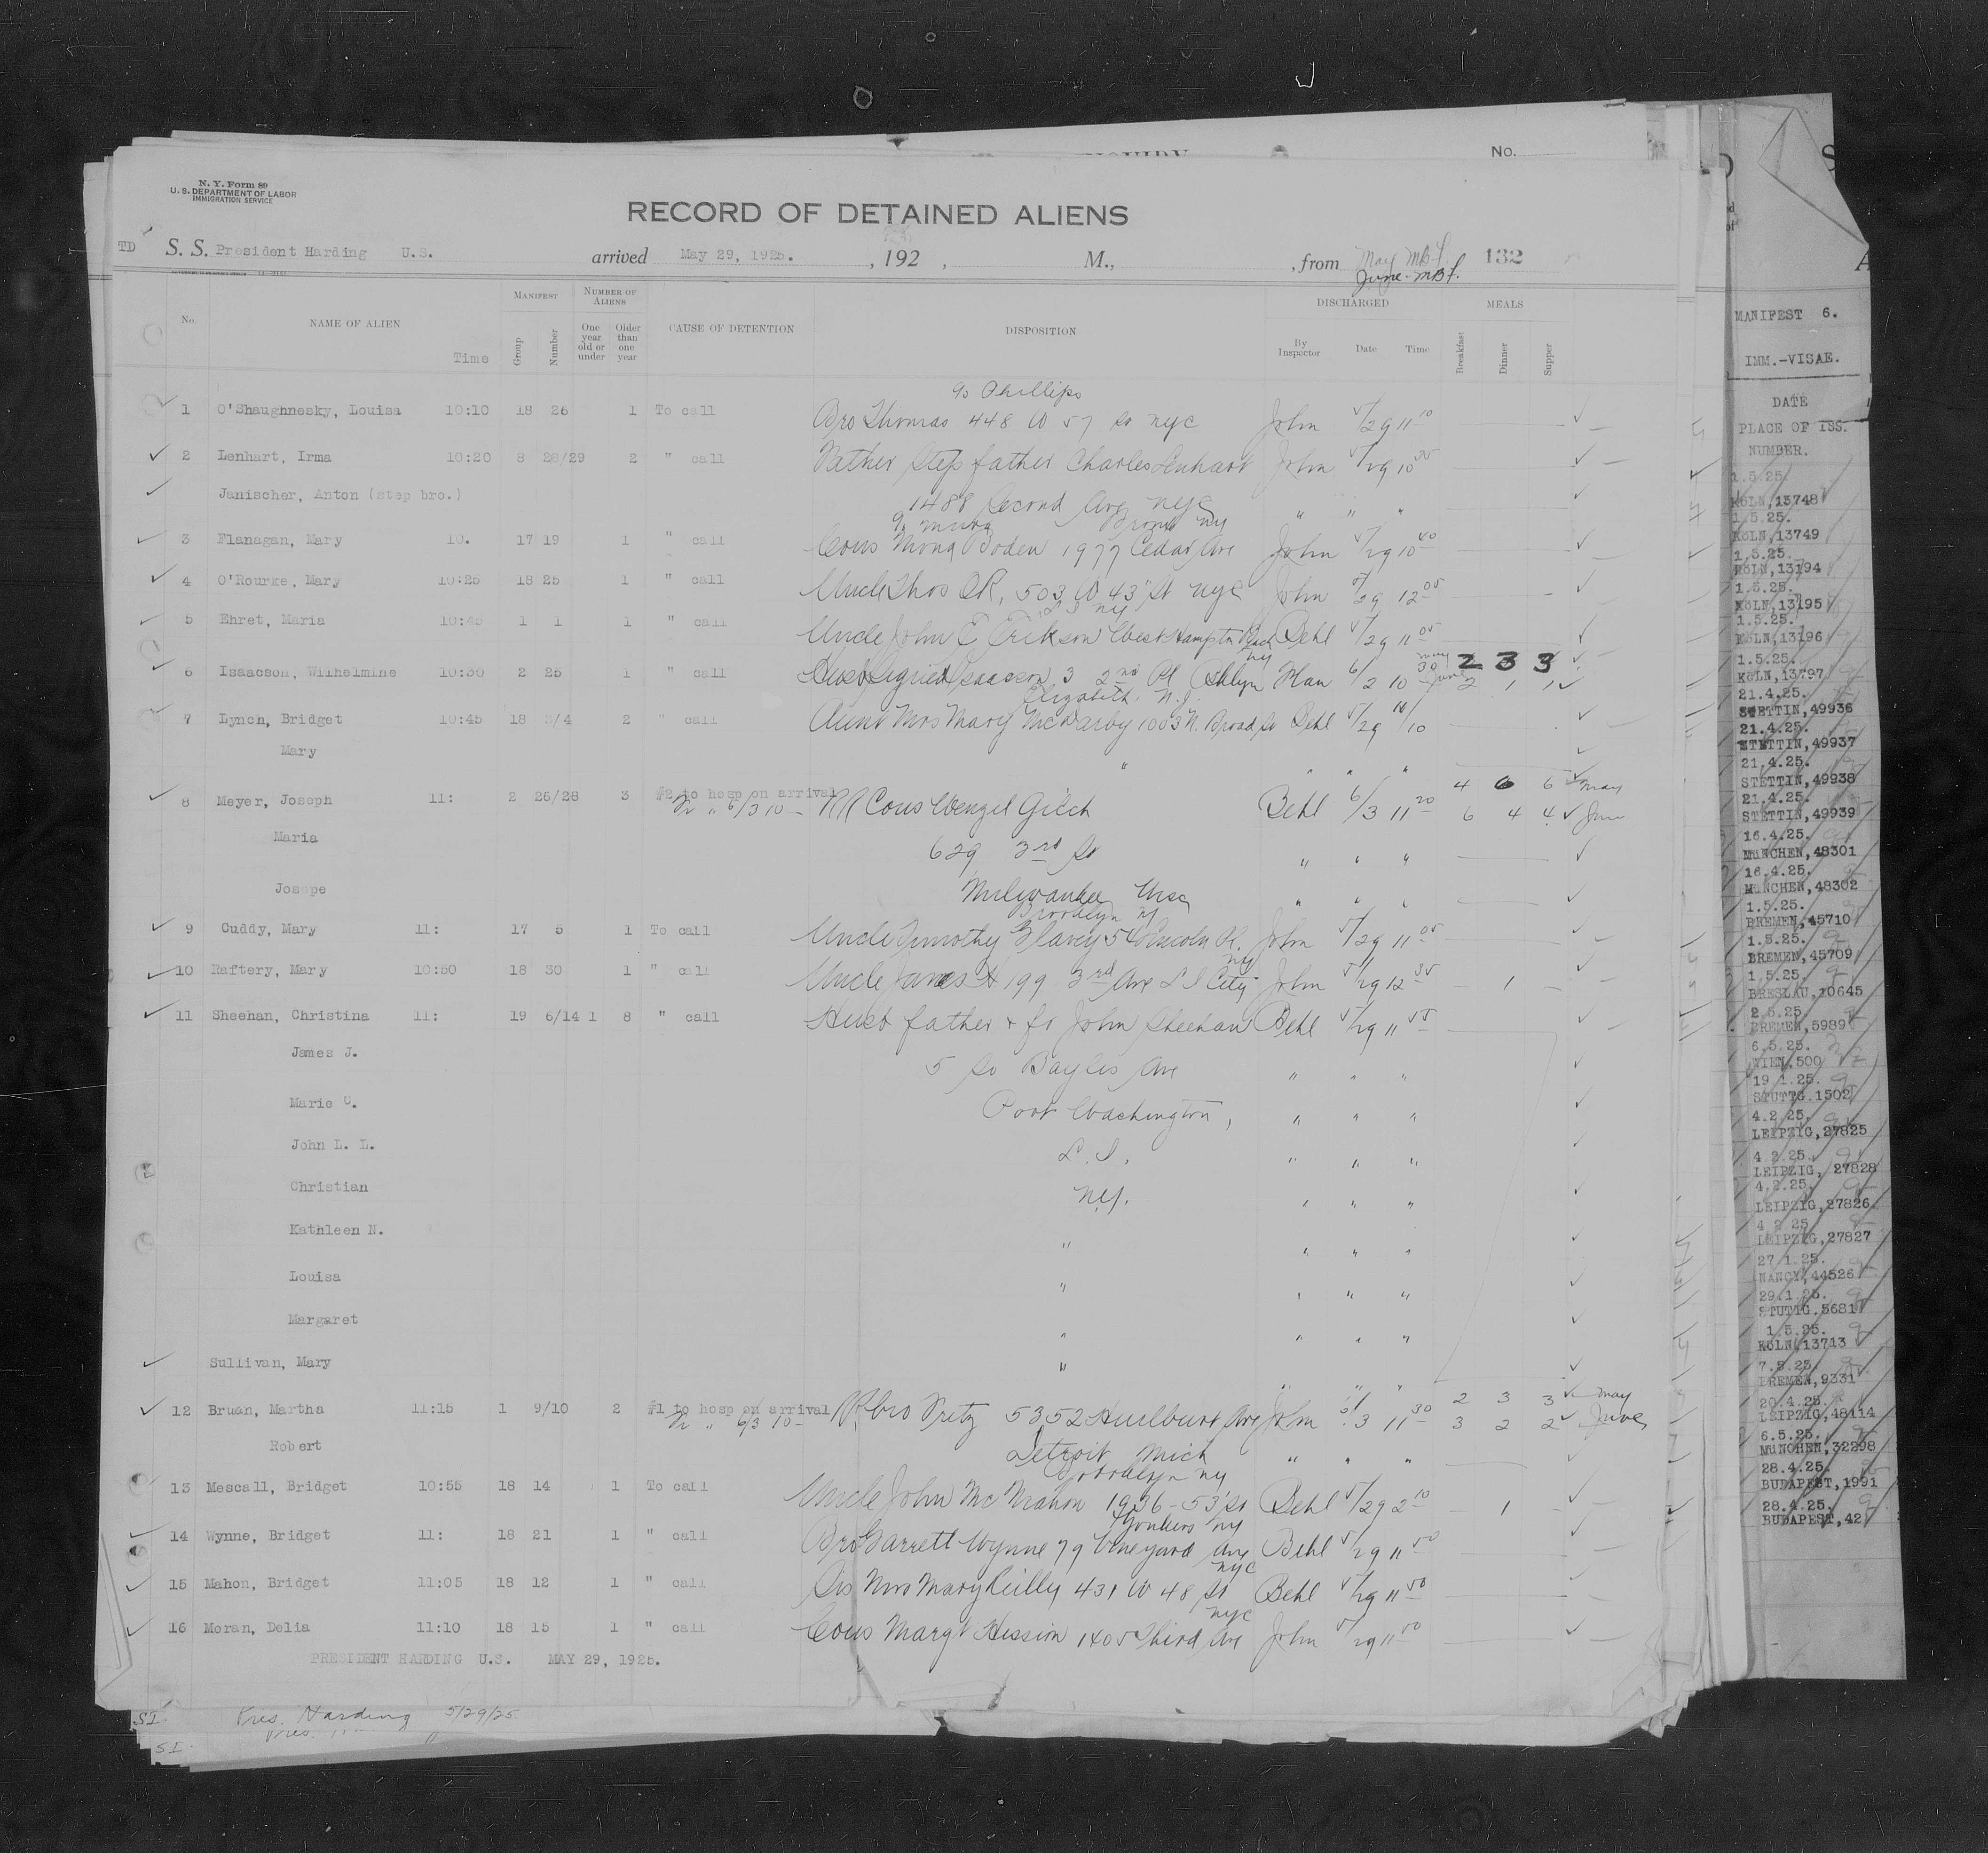 No.
N. Y. Form 89
U. S. DEPARTMENT OF LABOR
IMMIGRATION SERVICE
RECORD OF DETAINED ALIENS
TD S. S. President Harding U.S. arrived May 29, 1925. , 192 , M., , from May MBF. 132
June-MBF.
No. NAME OF ALIEN Time MANIFEST Group Number NUMBER OF ALIENS One year old or under Older than one year CAUSE OF DETENTION DISPOSITION DISCHARGED By Inspector Date Time MEALS Breakfast Dinner Supper
c/o Phillips
1 O'Shaughnesky, Louisa 10:10 18 26 1 To call Bro Thomas 448 W 57 St NYC John 5/29 11 10
2 Lenhart, Irma 10:20 8 28/29 2 " call Father Step father Charles Lenhart John 5/29 10 35
Janischer, Anton (step bro.) 1488 Second Ave NYC " " "
Bronx NY
3 Flanagan, Mary 10. 17 19 1 " call Cous Mona Boden 1977 Cedar Ave John 5/29 10 40
4 O'Rourke, Mary 10:25 18 25 1 " call Uncle Thos OR, 503 W 43" St NYC John 5/29 12 05
L I NY
5 Ehret, Maria 10:45 1 1 1 " call Uncle John E Erikson West Hampton Beach Behl 5/29 11 05
NY May 30 2 3 3
6 Isaacson, Wilhelmine 10:30 2 25 1 call Husb Sigried Isaacson 3 2nd Pl Bklyn Man 6/2 10 June 2 1 1
Elizabeth N.J.
7 Lynch, Bridget 10:45 18 3/4 2 " call Aunt Mrs Mary McDarby 1003 N. Broad St Behl 5/29 11/10
Mary " " " "
4 6 6 May
8 Meyer, Joseph 11: 2 26/28 3 #2 to hosp on arrival RR Cous Wenzel Gilch Behl 6/3 11 20 6 4 4 June
" 6/3 10-
Maria 629 3rd St " " "
Josepe Milwaukee Wisc " " "
Brooklyn NY
9 Cuddy, Mary 11: 17 5 1 To call Uncle Timothy Glavey 540 Lincoln Pl. John 5/29 11 05
NY
10 Raftery, Mary 10:50 18 30 1 " call Uncle James H 199 3rd Ave L I City John 5/29 12 35 1
11 Sheehan, Christina 11: 19 6/14 1 8 " call Husb father + fr John Sheehan Behl 5/29 11 55
James J. 5 So Bayles Ave " " "
Marie C. Port Washington, " " "
John L. L. L. I. " " "
Christian NY. " " "
Kathleen N. " " " "
Louisa " " " "
Margaret " " " "
Sullivan, Mary " " " "
2 3 3 May
12 Bruan, Martha 11:15 1 9/10 2 #1 to hosp on arrival RR bro Fritz 5352 Hurlburt Ave John 6/3 11 30 3 2 2 June
" 6/3 10-
Robert Detroit Mich " " "
Brooklyn NY
13 Mescall, Bridget 10:55 18 14 1 To call Uncle John McMahon 1936-53 St Behl 5/29 2 10 1
Yonkers NY
14 Wynne, Bridget 11: 18 21 1 " call Bro Garrett Wynne 79 Vineyard Ave Behl 5/29 11 50
NYC
15 Mahon, Bridget 11:05 18 12 1 " call Sis Mrs Mary Reilly 431 W 48 St Behl 5/29 11 50
NYC
16 Moran, Delia 11:10 18 15 1 " call Cous Margt Hession 1405 Third Ave John 5/29 11 50
PRESIDENT HARDING U.S. MAY 29, 1925.
SI. Pres. Harding 5/29/25
SI. Pres. "
MANIFEST 6.
IMM.-VISAE.
DATE
PLACE OF ISS.
NUMBER.
1.5.25.
KÖLN,13748
1.5.25.
KÖLN,13749
1.5.25.
KÖLN,13194
1.5.25.
KÖLN,13195
1.5.25.
KÖLN,13196
1.5.25.
KÖLN,13797
21.4.25.
STETTIN,49936
21.4.25.
STETTIN,49937
21.4.25.
STETTIN,49938
21.4.25.
STETTIN,49939
16.4.25.
MÜNCHEN,48301
16.4.25.
MÜNCHEN,48302
1.5.25.
BREMEN,45710
1.5.25.
BREMEN,45709
1.5.25.
BRESLAU,10645
2.5.25.
BREMEN,5989
6.5.25.
WIEN,500
19.1.25.
STUTTG.1502
4.2.25.
LEIPZIG,27825
4.2.25.
LEIPZIG, 27828
4.2.25.
LEIPZIG,27826
4.2.25
LEIPZIG,27827
27.1.25.
NANCY,44526
29.1.25.
STUTTG.5681
1.5.25.
KÖLN,13713
7.5.25.
BREMEN,9331
20.4.25.
LEIPZIG,48114
6.5.25.
MÜNCHEN,32298
28.4.25.
BUDAPEST,1991
28.4.25.
BUDAPEST,42